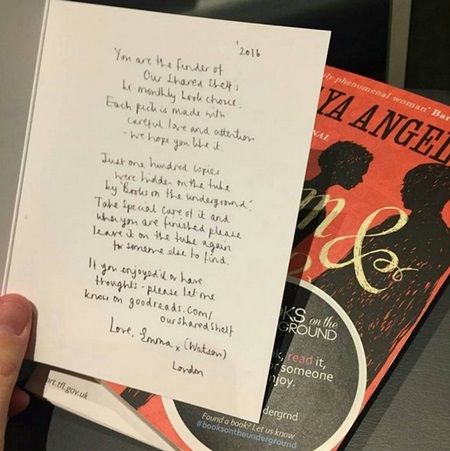 '2016
You are the finder of
Our Shared Shelf's
bi monthly book choice.
Each pick is made with
careful love and attention
- we hope you like it.
Just one hundred copies
were hidden on the tube
by 'Books on the underground'.
Take special care of it and
when you are finished please
leave it on the tube again
for someone else to find.
If you enjoyed it or have
thoughts - please let me
know on goodreads.com/
oursharedshelf
Love, Emma x (Watson)
London
phenomenal woman' Bar
YA ANGEL
NAL
m &
KS on the
GROUND
k, read it,
r someone
njoy.
dergrnd
Found a book? Let us know
#booksontheunderground
rt.tfl.gov.uk